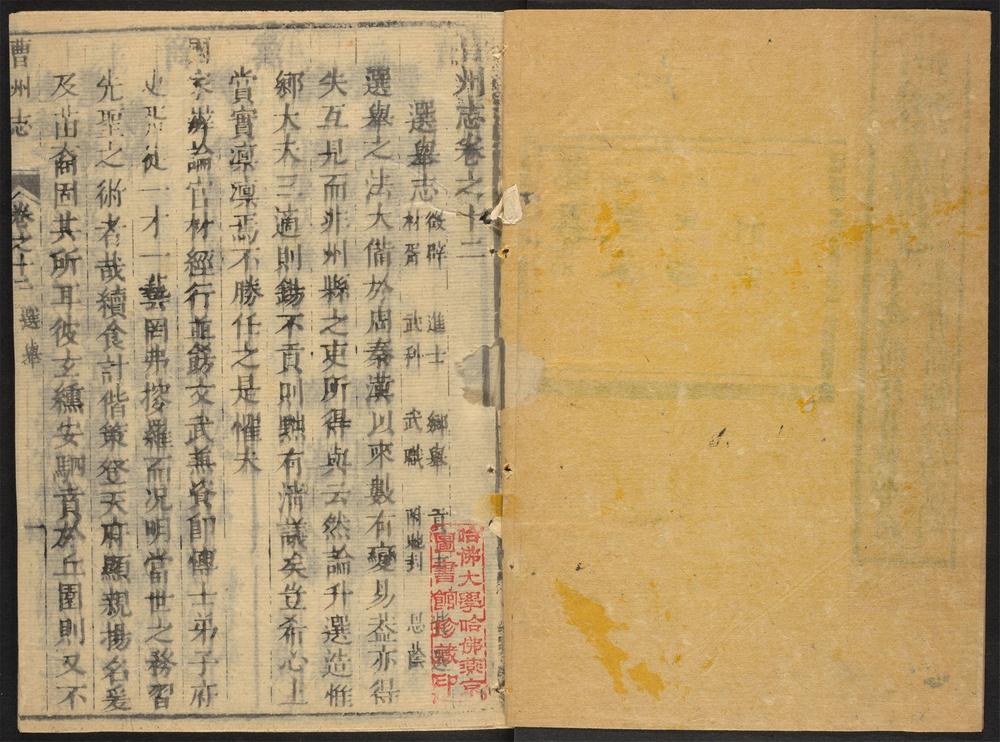 州志卷之十二
選舉志
徵辟 進士 鄉舉
材胥 武科 武職 恩蔭
選舉之法大備於周秦漢以來數有變易益亦得
失互見而非州縣之吏所得與云然論升選造惟
鄉大夫三適則錫不貢則黜有清議矣豈希心上
賞實凜凜焉不勝任之是懼夫
國家辨論官材經行並飭文武兼資即傅士弟子府
史胥徒一才一藝罔弗摉羅而况明當世之務習
先聖之術者哉續食計偕策登天府顯親揚名爰
及苗裔固其所耳彼玄纁安駟賁於丘園則又不
曹州志
卷之十二 選舉
哈佛大學哈佛燕京
圖書館珍藏印